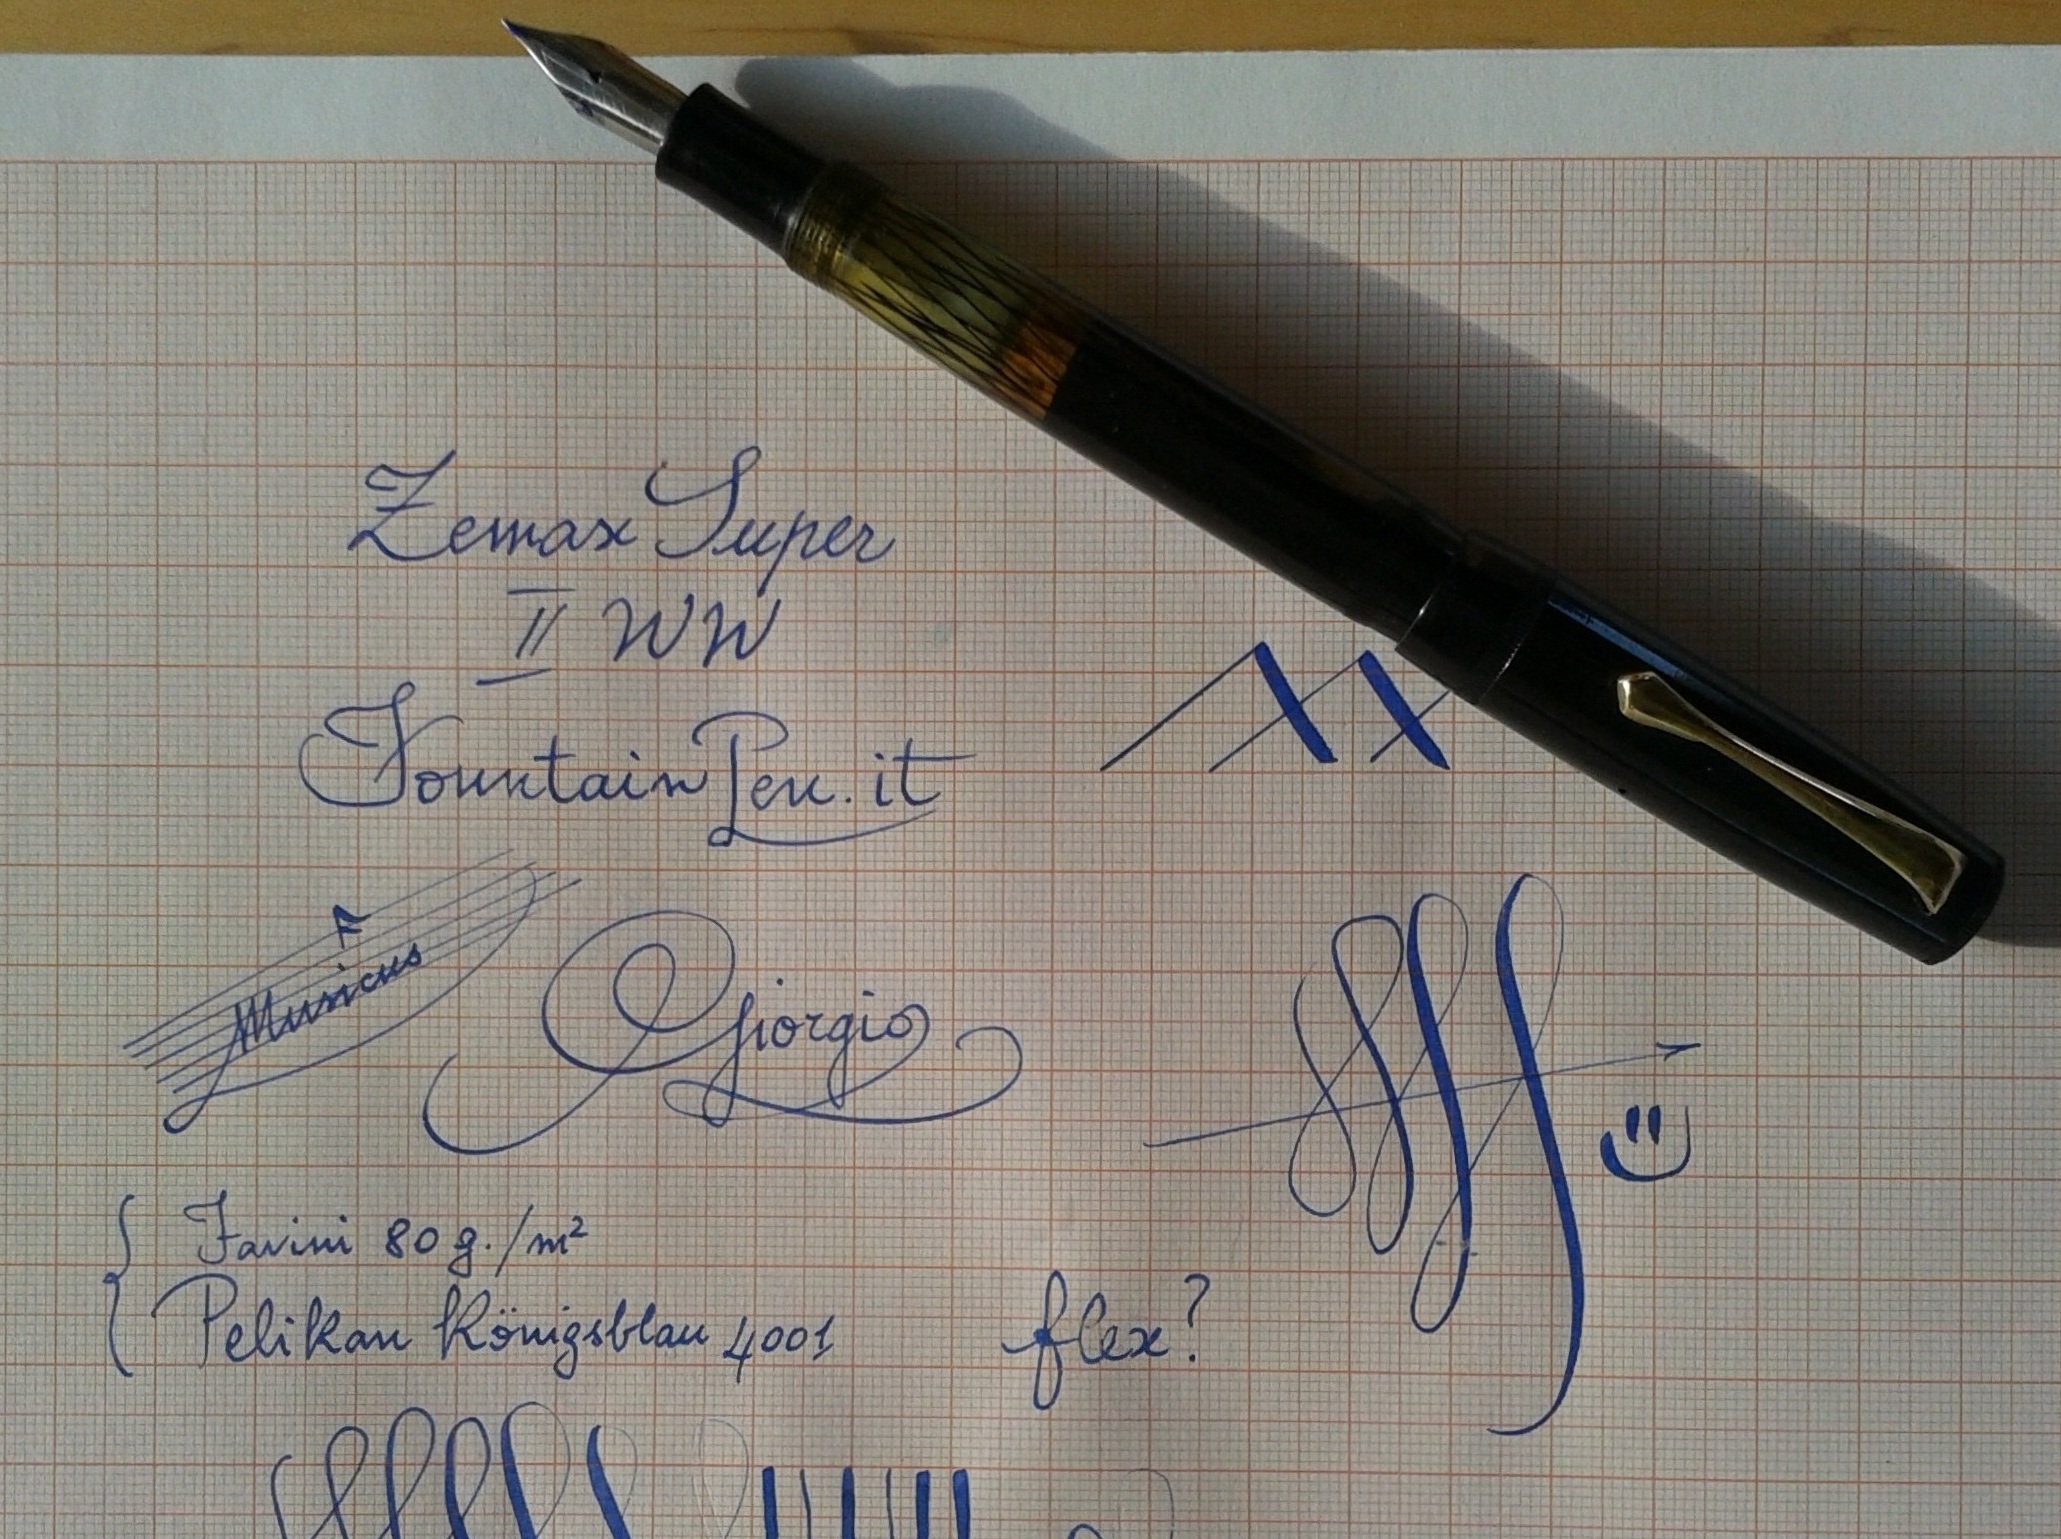 Zemax Super
II WW
FountainPen.it
Musicus
Giorgio
fff
Favini 80 g./m²
Pelikan Königsblau 4001
flex?